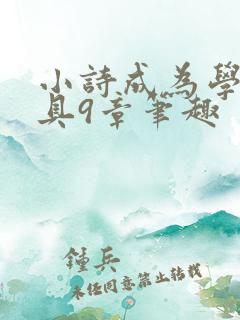 小詩成為學
具9章筆趣
鍾兵
未經同意禁止轉載